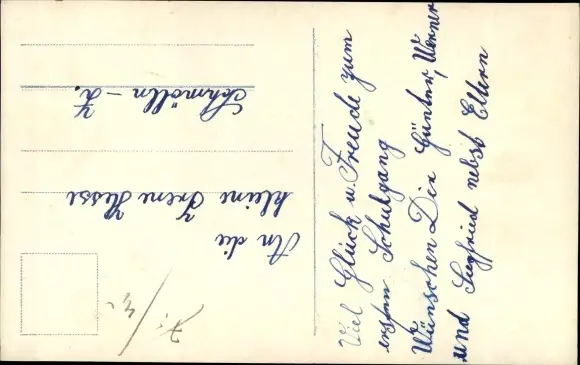 Viel Glück u. Freude zum
ersten Schulgang
Wünschen Dir Günter, Werner
und Siegfried nebst Eltern
An die
kleine Irene Hesse
Schmölln – Z.